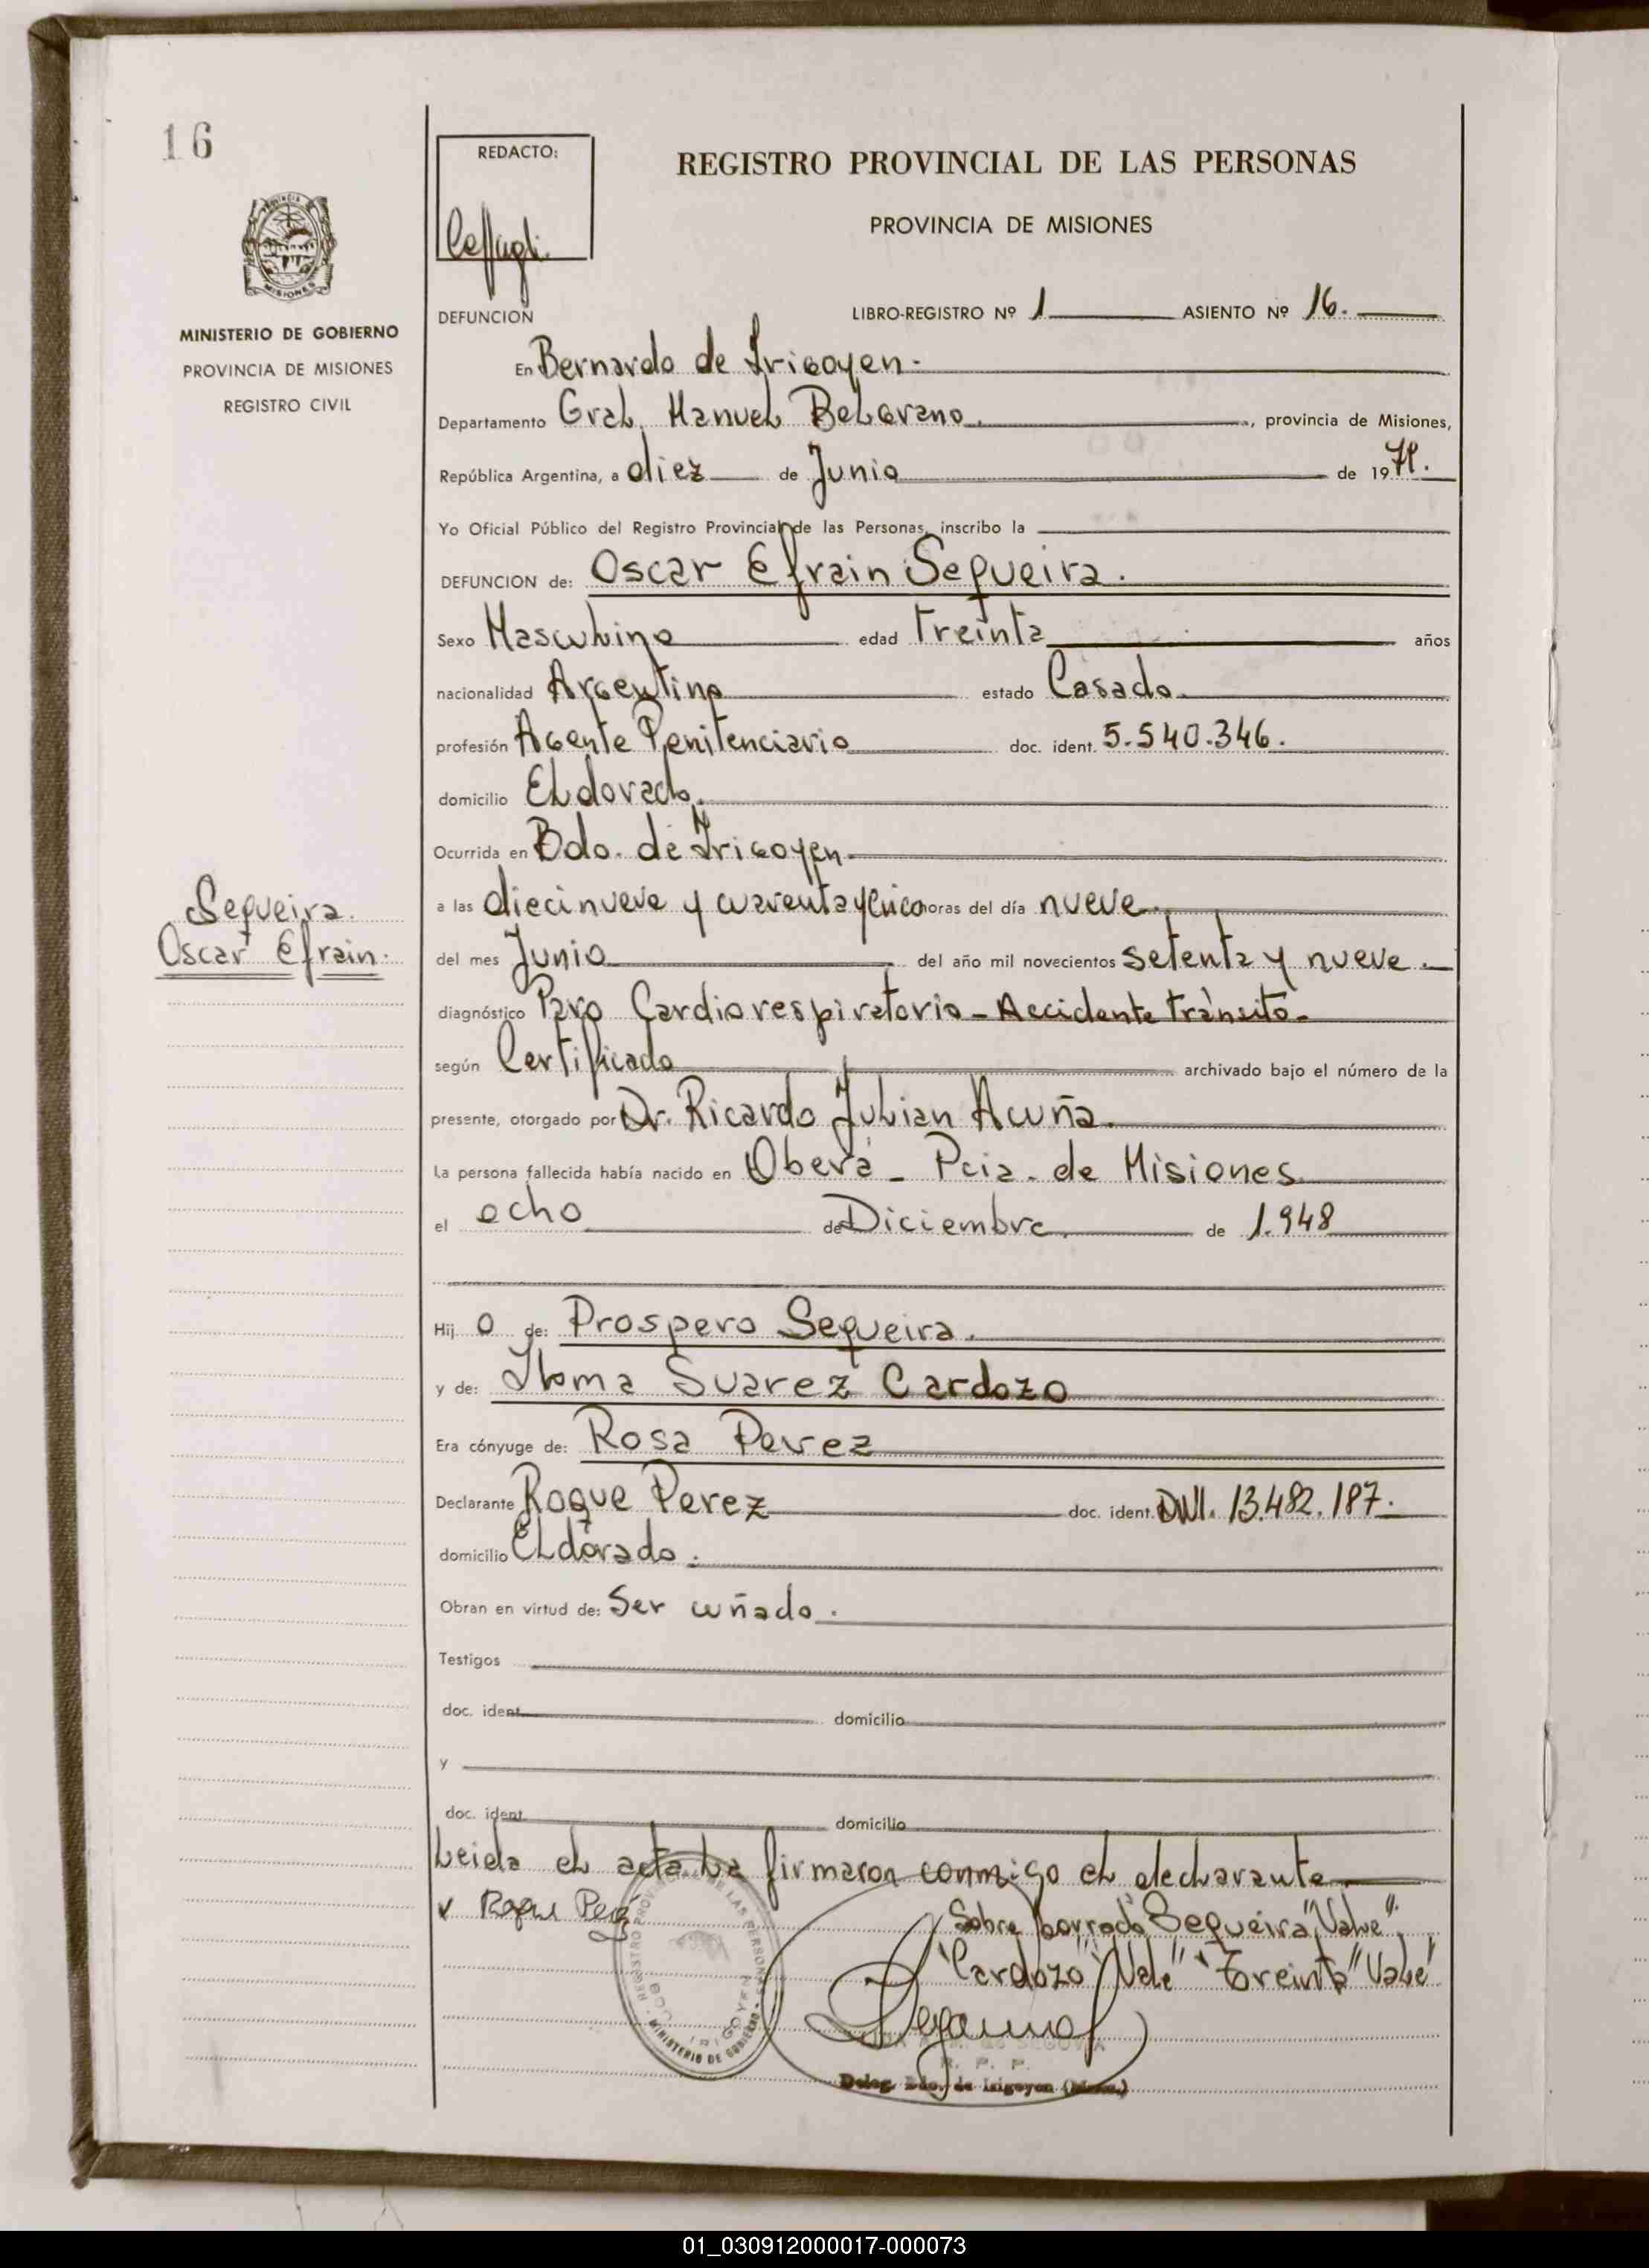 16
REDACTO:
REGISTRO PROVINCIAL DE LAS PERSONAS
PROVINCIA DE MISIONES
MISIONES
MINISTERIO DE GOBIERNO
PROVINCIA DE MISIONES
REGISTRO CIVIL
DEFUNCION LIBRO-REGISTRO Nº 1 ASIENTO Nº 16.
En Bernardo de Irigoyen.
Departamento Gral. Manuel Belgrano., provincia de Misiones,
República Argentina, a diez de Junio de 1979.
Yo Oficial Público del Registro Provincial de las Personas, inscribo la
DEFUNCION de: Oscar Efrain Sequeira.
Sexo Masculino edad treinta años
nacionalidad Argentino estado Casado.
profesión Agente Penitenciario doc. ident. 5.540.346.
domicilio Eldorado.
Ocurrida en Bdo. de Irigoyen.
a las diecinueve y cuarenta y cinco horas del día nueve.
del mes Junio del año mil novecientos setenta y nueve.
diagnóstico Paro Cardiorespiratorio - Accidente tránsito -
según Certificado archivado bajo el número de la
presente, otorgado por Dr. Ricardo Julian Acuña.
La persona fallecida había nacido en Oberá - Pcia. de Misiones
el ocho de Diciembre. de 1.948
Hij o de: Prospero Sequeira.
y de: Ilma Suarez Cardozo
Era cónyuge de: Rosa Perez
Declarante Roque Perez doc. ident. DNI. 13.482.187.
domicilio Eldorado.
Obran en virtud de: Ser cuñado.
Testigos
doc. ident. domicilio
y
doc. ident. domicilio
Leida el acta la firmaron conmigo el declarante.
Sequeira.
Oscar Efrain.
v Roque Perez
Sobre borrado Sequeira "Vale".
"Cardozo" "Vale" "Treinta" Vale"
MINISTERIO DE GOBIERNO
R. P. P.
Deleg. Bdo. de Irigoyen
01_030912000017-000073